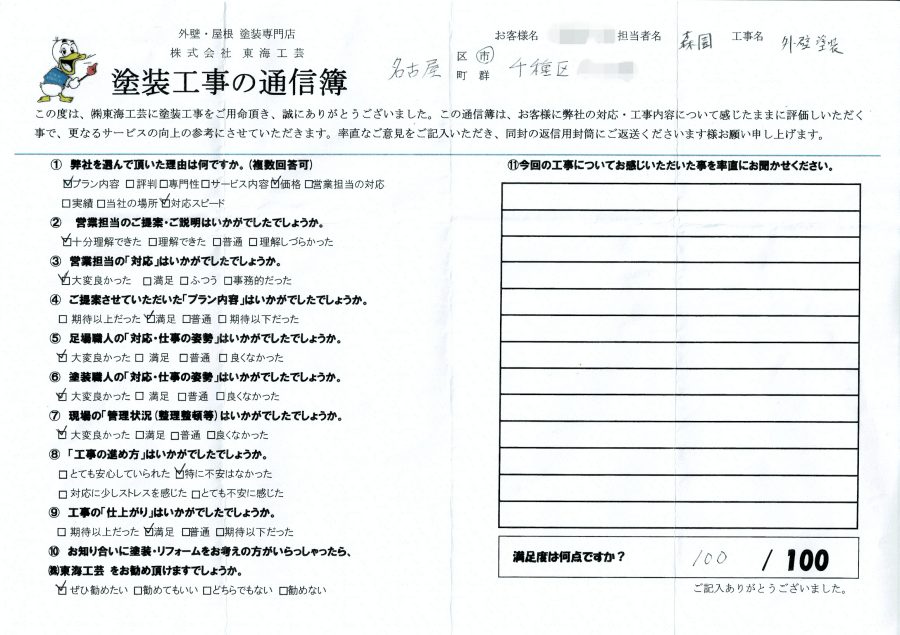 外壁・屋根 塗装専門店
株式会社 東海工芸
塗装工事の通信簿
お客様名 担当者名 森園 工事名 外壁塗装
名古屋 区 市 町 群 千種区
この度は、㈱東海工芸に塗装工事をご用命頂き、誠にありがとうございました。この通信簿は、お客様に弊社の対応・工事内容について感じたままに評価しいただく
事で、更なるサービスの向上の参考にさせていただきます。率直なご意見をご記入いただき、同封の返信用封筒にご返送くださいます様お願い申し上げます。
① 弊社を選んで頂いた理由は何ですか。(複数回答可)
☑プラン内容 □評判□専門性□サービス内容☑価格 □営業担当の対応
□実績 □当社の場所 ☑対応スピード
② 営業担当のご提案・ご説明はいかがでしたでしょうか。
☑十分理解できた □理解できた □普通 □理解しづらかった
③ 営業担当の「対応」はいかがでしたでしょうか。
☑大変良かった □満足 □ふつう □事務的だった
④ ご提案させていただいた「プラン内容」はいかがでしたでしょうか。
□ 期待以上だった ☑満足 □普通 □ 期待以下だった
⑤ 足場職人の「対応・仕事の姿勢」はいかがでしたでしょうか。
☑ 大変良かった □ 満足 □普通 □ 良くなかった
⑥ 塗装職人の「対応・仕事の姿勢」はいかがでしたでしょうか。
☑ 大変良かった □ 満足 □普通 □良くなかった
⑦ 現場の「管理状況(整理整頓等)はいかがでしたでしょうか。
☑ 大変良かった □満足 □普通 □良くなかった
⑧ 「工事の進め方」はいかがでしたでしょうか。
□とても安心していられた ☑特に不安はなかった
□対応に少しストレスを感じた □とても不安に感じた
⑨ 工事の「仕上がり」はいかがでしたでしょうか。
□ 期待以上だった ☑満足 □普通 □期待以下だった
⑩ お知り合いに塗装・リフォームをお考えの方がいらっしゃったら、
㈱東海工芸 をお勧め頂けますでしょうか。
☑ぜひ勧めたい □勧めてもいい □どちらでもない □勧めない
⑪今回の工事についてお感じいただいた事を率直にお聞かせください。
満足度は何点ですか? 100 / 100
ご記入ありがとうございました。